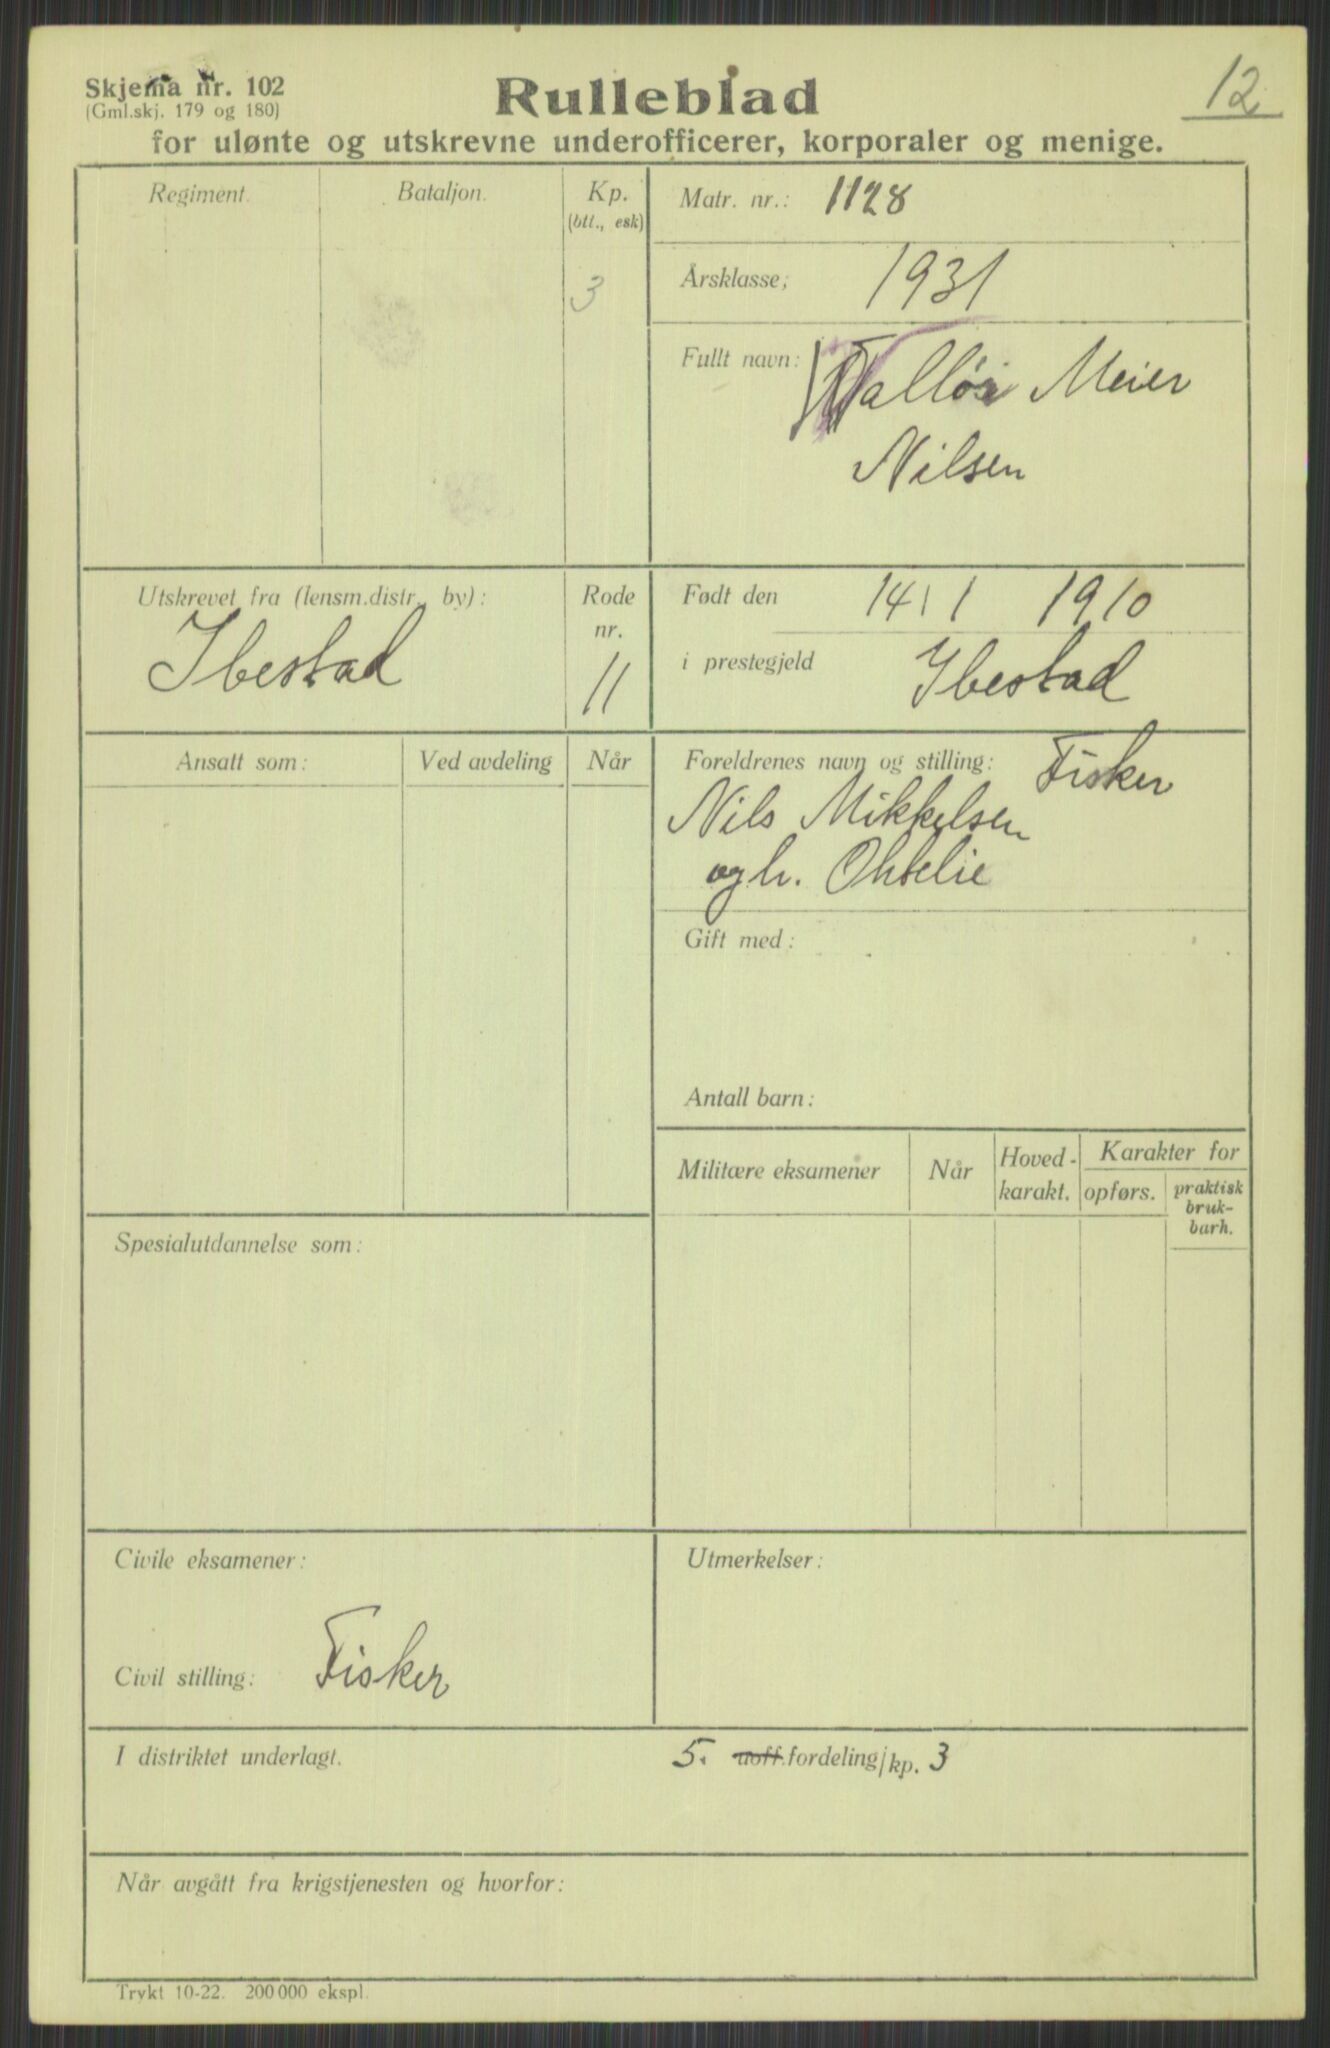 Skjema nr. 102
(Gml.skj. 179 og 180)
Rulleblad
12.
for ulønte og utskrevne underofficerer, korporaler og menige.
Regiment.
Bataljon.
Kp.
(btt., esk)
3
Matr. nr.: 1128
Årsklasse; 1931
Fullt navn: Meier
Nilsen
Utskrevet fra (lensm.distr., by):
Ibestad
Rode
nr.
11
Født den 14/1 1910
i prestegjeld Ibestad
Ansatt som:
Ved avdeling
Når
Foreldrenes navn og stilling: Fisker
Nils Mikkelsen
og h.
Gift med:
Antall barn:
Militære eksamener
Når
Hoved-
karakt.
Karakter for
opførs.
praktisk
bruk-
barh.
Spesialutdannelse som:
Civile eksamener:
Civil stilling: Fisker
Utmerkelser:
I distriktet underlagt. 5. uoff.fordeling/kp. 3
Når avgått fra krigstjenesten og hvorfor:
Trykt 10-22. 200 000 ekspl.